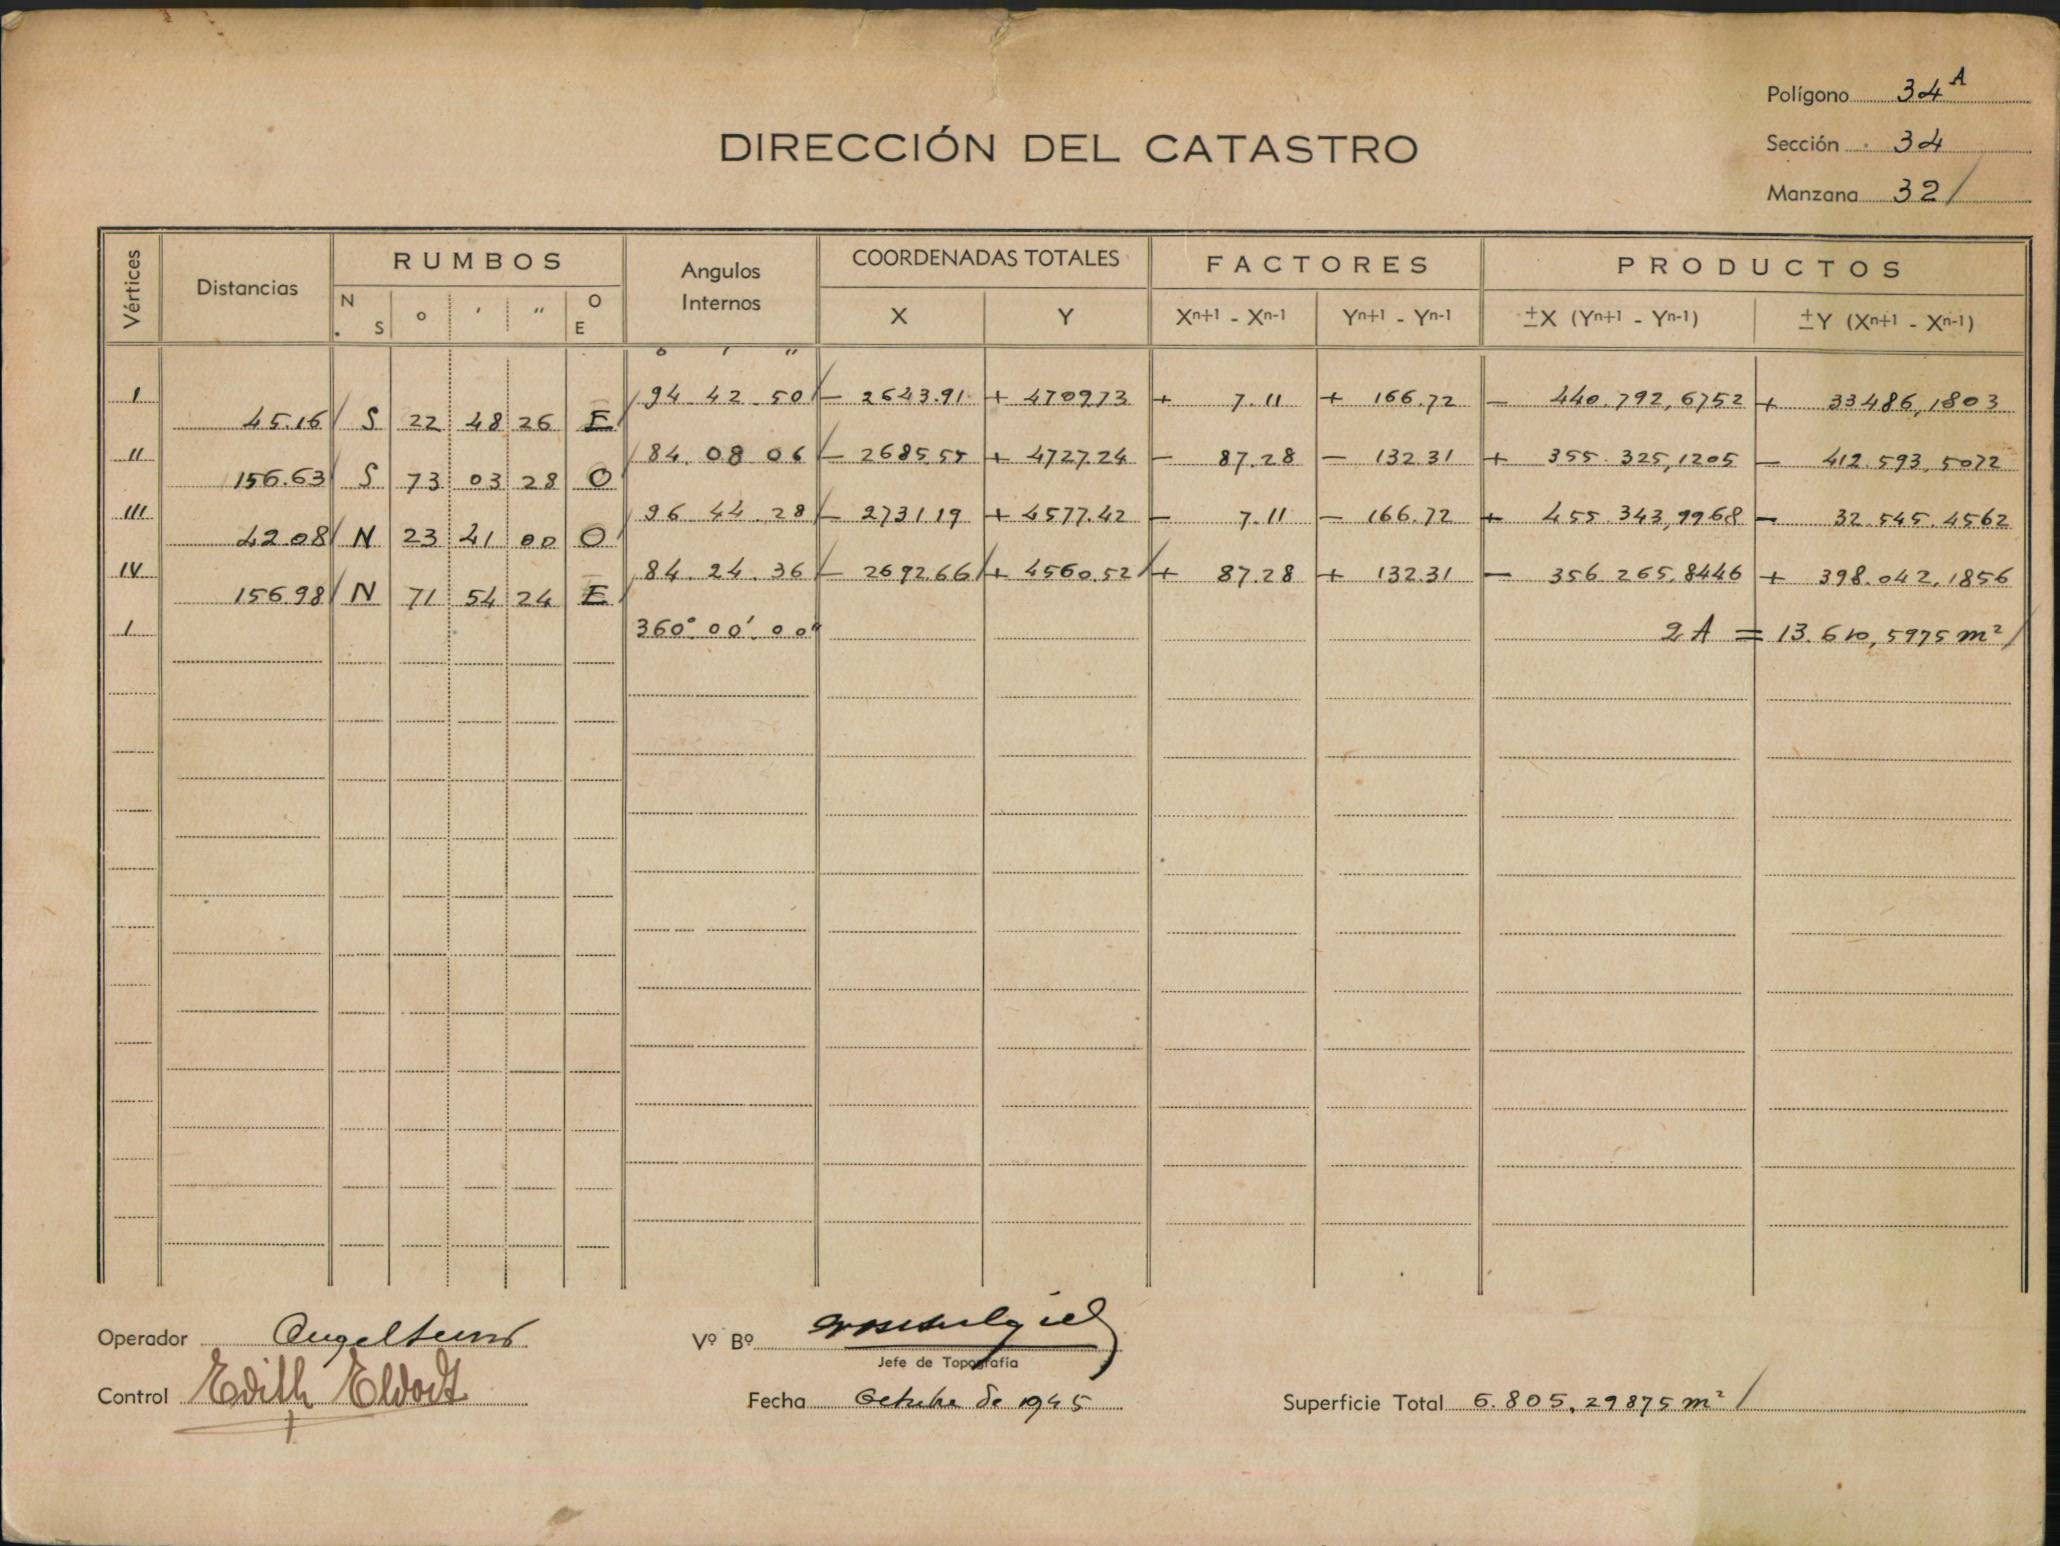 Polígono 34 A
DIRECCIÓN DEL CATASTRO
Sección 34
Manzana 32
Vértices Distancias RUMBOS Angulos Internos COORDENADAS TOTALES FACTORES PRODUCTOS
N S ° ' " O E X Y Xn+1 - Xn-1 Yn+1 - Yn-1 ±X (Yn+1 - Yn-1) ±Y (Xn+1 - Xn-1)
° ' "
I 94 42 50 - 2643.91 + 4709.73 + 7.11 + 166.72 - 440.792,6752 + 33486,1803
45.16 S 22 48 26 E
II 84 08 06 - 2685.55 + 4727.24 - 87.28 - 132.31 + 355.325,1205 - 412.593,5072
156.63 S 73 03 28 O
III 96 44 28 - 2731.19 + 4577.42 - 7.11 - 166.72 + 455.343,9968 - 32.545.4562
42.08 N 23 41 00 O
IV 84 24 36 - 2692.66 + 4560.52 + 87.28 + 132.31 - 356.265,8446 + 398.042,1856
156.98 N 71 54 24 E
I 360° 00' 00" 2A = 13.610,5975 m²
Operador
Vº Bº
Jefe de Topografía
Control Edith
Fecha Octubre de 1945
Superficie Total 6.805,29875 m²